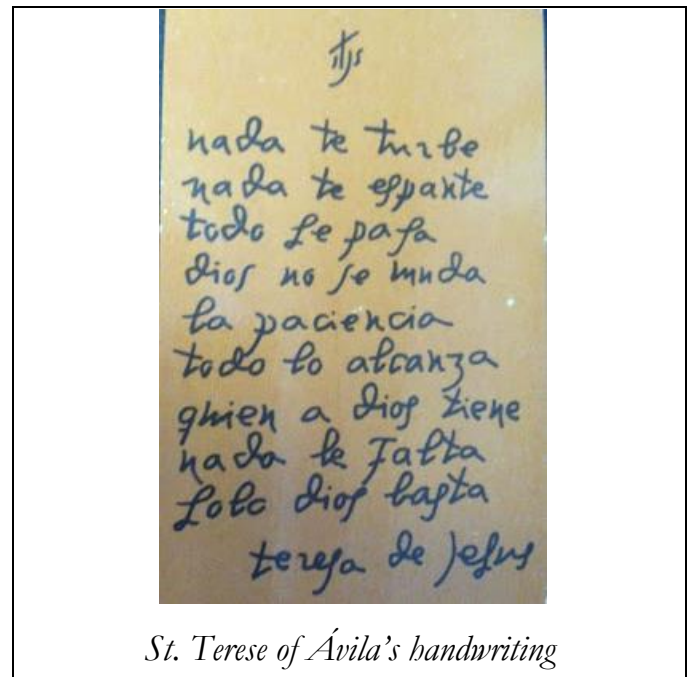 jhs
nada te turbe
nada te espante
todo se pasa
dios no se muda
la paciencia
todo lo alcanza
quien a dios tiene
nada le falta
solo dios basta
teresa de Jesus
St. Terese of Ávila's handwriting